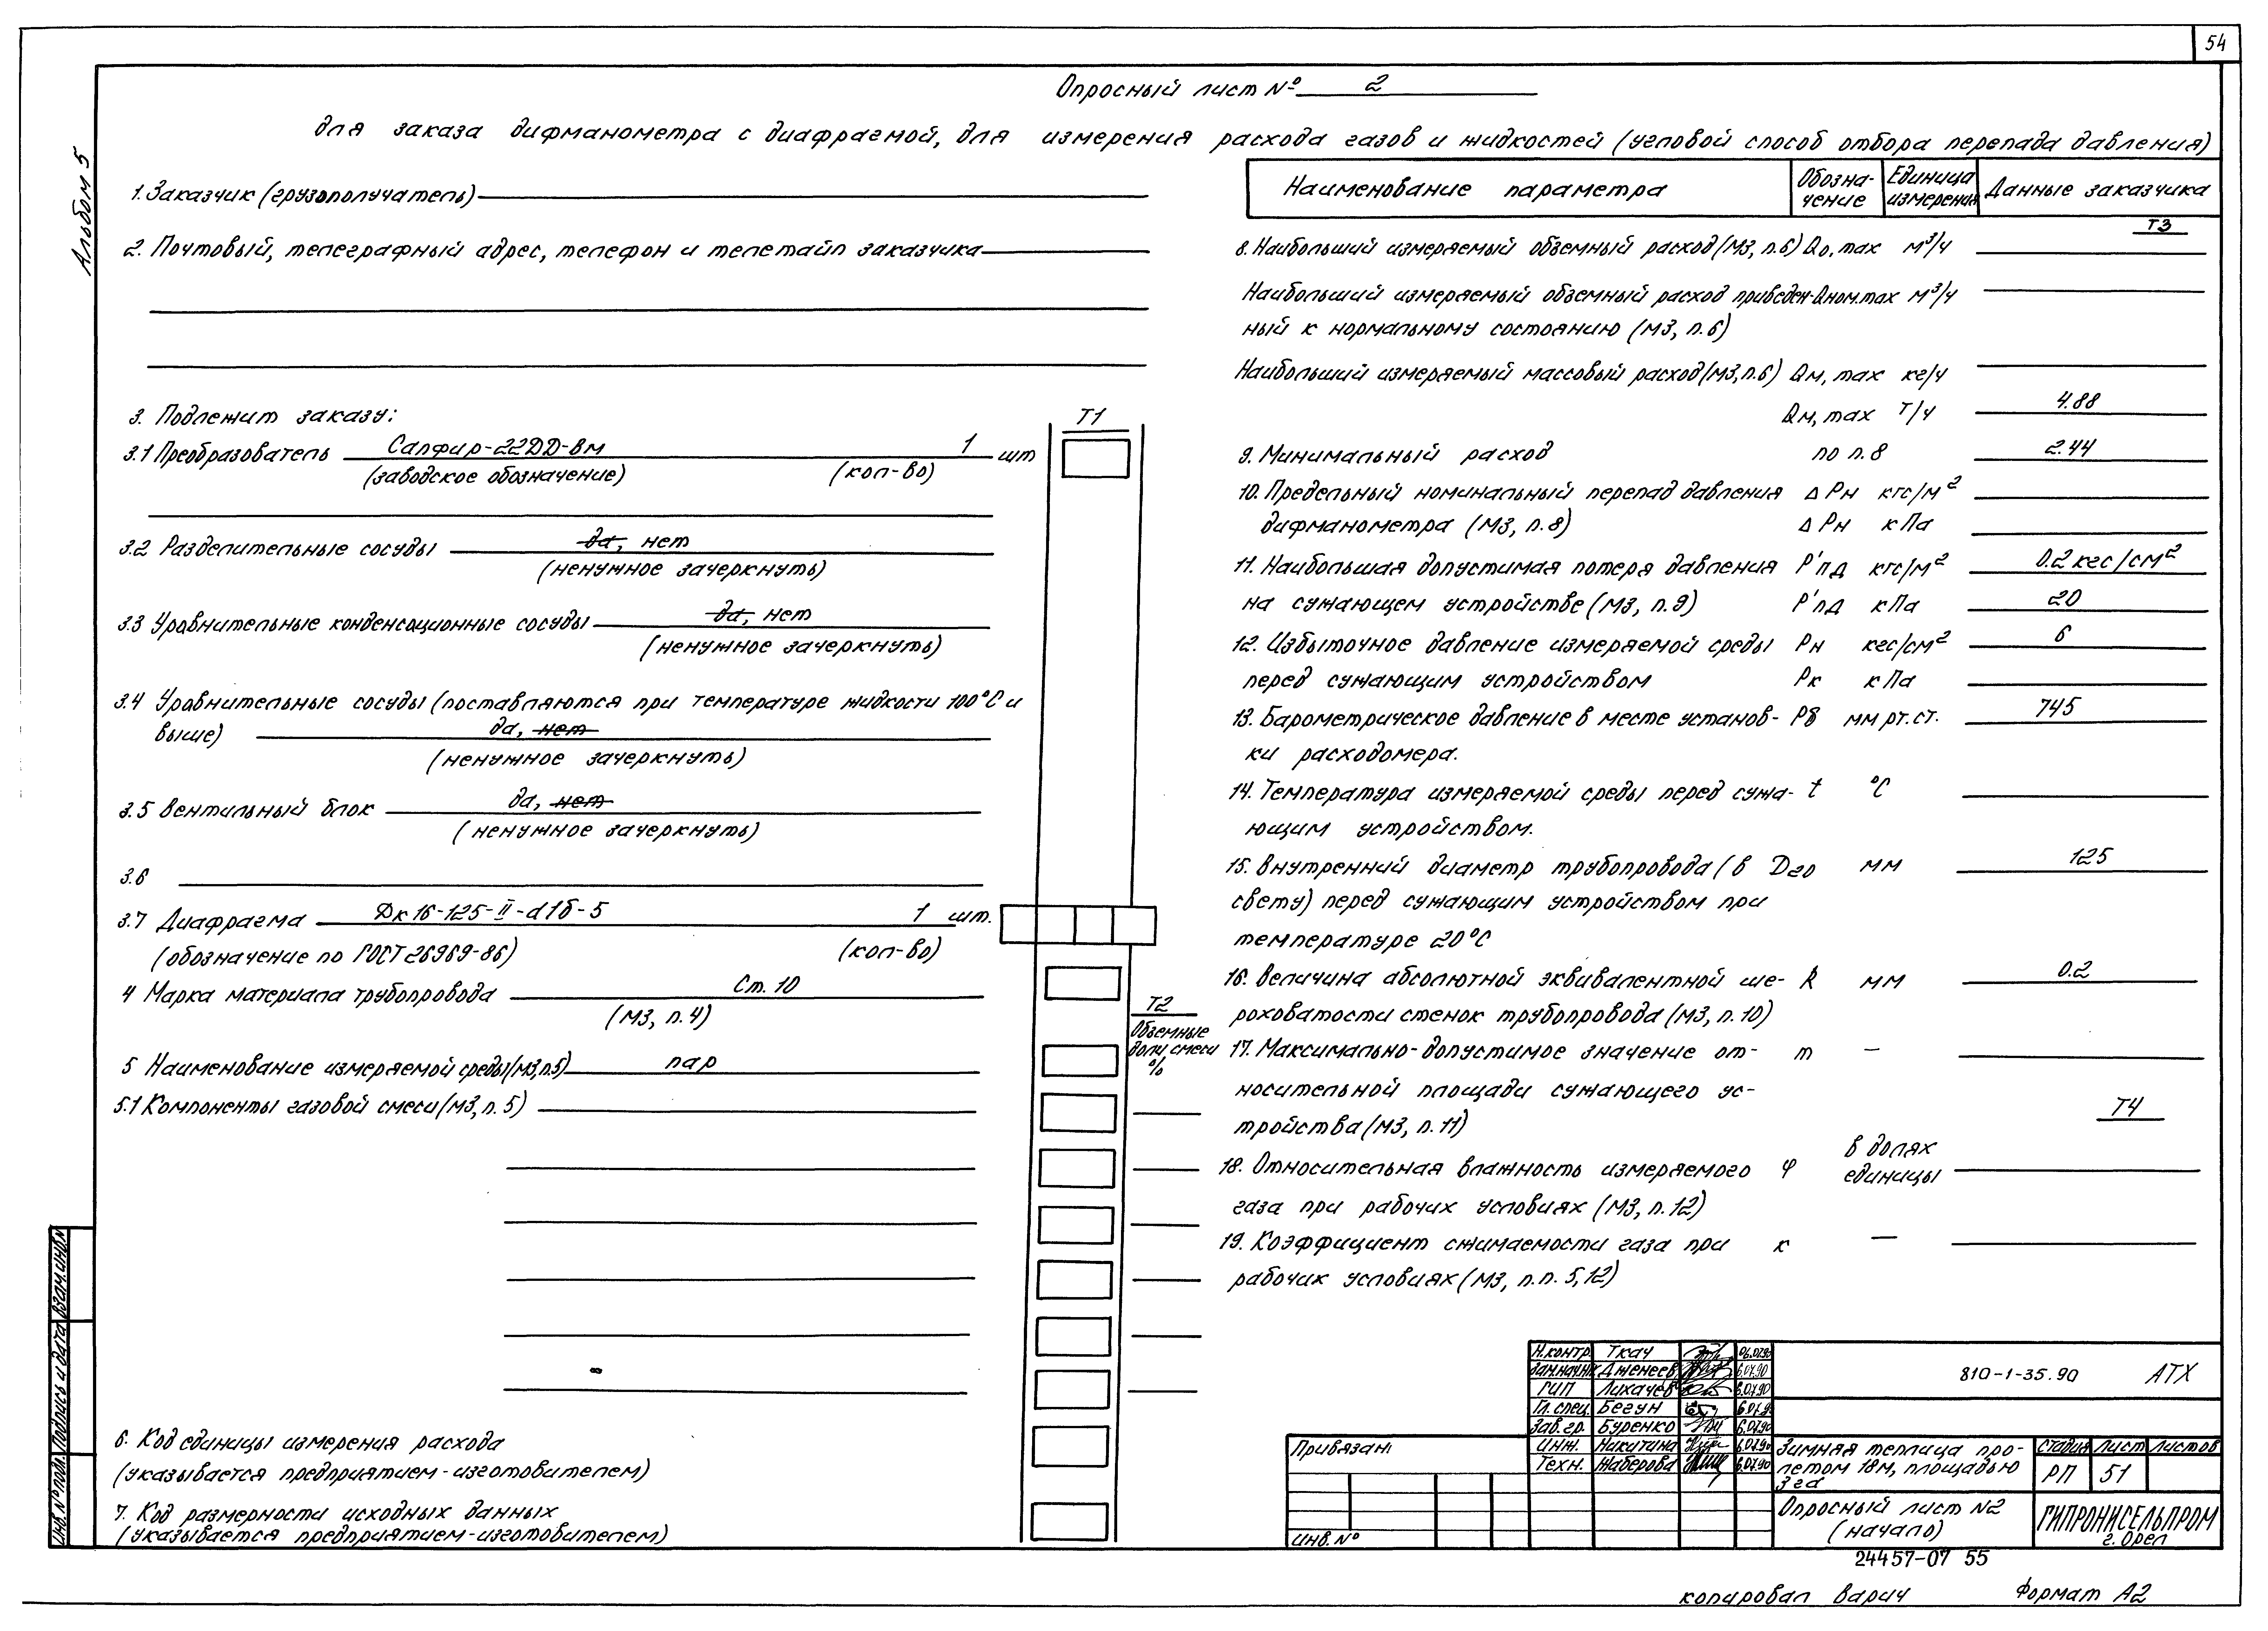 54
Альбом 5
Опросный лист № 2
для заказа дифманометра с диафрагмой, для измерения расхода газов и жидкостей (угловой способ отбора перепада давления)
1. Заказчик (грузополучатель)
2. Почтовый, телеграфный адрес, телефон и телетайп заказчика
3. Подлежит заказу:
Т1
3.1 Преобразователь Сапфир-22ДД-Вм 1 шт
(заводское обозначение) (кол-во)
3.2 Разделительные сосуды да, нет
(ненужное зачеркнуть)
3.3 Уравнительные конденсационные сосуды да, нет
(ненужное зачеркнуть)
3.4 Уравнительные сосуды (поставляются при температуре жидкости 100°С и
выше) да, нет
(ненужное зачеркнуть)
3.5 Вентильный блок да, нет
(ненужное зачеркнуть)
3.6
3.7 Диафрагма Дк 16-125-II-а1б-5 1 шт.
(обозначение по ГОСТ 26969-86) (кол-во)
4 Марка материала трубопровода Ст. 10
(МЗ, п.4)
Т2
Объемные
доли, смеси
%
5 Наименование измеряемой среды (МЗ, п.5) пар
5.1 Компоненты газовой смеси (МЗ, п. 5)
6. Код единицы измерения расхода
(указывается предприятием-изготовителем)
7. Код размерности исходных данных
(указывается предприятием-изготовителем)
Наименование параметра Обозна- Единица Данные заказчика
чение измерения
Т3
8. Наибольший измеряемый объемный расход (МЗ, п.6) Qо, max м³/ч
Наибольший измеряемый объемный расход приведен- Qном. max м³/ч
ный к нормальному состоянию (МЗ, п.6)
Наибольший измеряемый массовый расход (МЗ, п.6) Qм, max кг/ч
Qм, max Т/ч 4.88
9. Минимальный расход по п.8 2.44
10. Предельный номинальный перепад давления Δ Рн кгс/м²
дифманометра (МЗ, п.8) Δ Рн кПа
11. Наибольшая допустимая потеря давления Р'пд кгс/м² 0.2 кгс/см²
на сужающем устройстве (МЗ, п.9) Р'пд кПа 20
12. Избыточное давление измеряемой среды Рн кгс/см² 6
перед сужающим устройством Рк кПа
13. Барометрическое давление в месте установ- Рб мм рт. ст. 745
ки расходомера.
14. Температура измеряемой среды перед сужа- t °С
ющим устройством.
15. Внутренний диаметр трубопровода (в D20 мм 125
свету) перед сужающим устройством при
температуре 20°С
16. Величина абсолютной эквивалентной ше- R мм 0.2
роховатости стенок трубопровода (МЗ, п.10)
17. Максимально-допустимое значение от- m —
носительной площади сужающего ус-
тройства (МЗ, п.11)
Т4
18. Относительная влажность измеряемого φ в долях единицы
газа при рабочих условиях (МЗ, п.12)
19. Коэффициент сжимаемости газа при к —
рабочих условиях (МЗ, п.п. 5,12)
Н.контр. Ткач 06.07.90
Дженеев 6.07.90
ГИП Лихачев 6.07.90
Гл. спец. Бегун 6.07.90
Зав. гр. Буренко 6.07.90
Инж. Никитина 6.07.90
Техн. Жаберова 6.07.90
810-1-35.90 АТХ
Привязан:
Инв. №
Зимняя теплица про-
летом 18м, площадью
3 га
Стадия Лист Листов
РП 51
Опросный лист №2
(начало)
ГИПРОНИСЕЛЬПРОМ
г. Орел
24457-07 55
Копировал Варич Формат А2
Инв. № подл. Подпись и дата Взам. инв. №